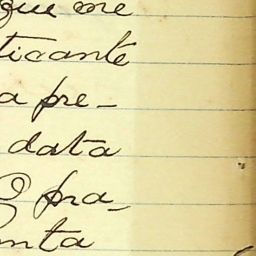 que me
ticante
a pre-
data
O pra-
nta